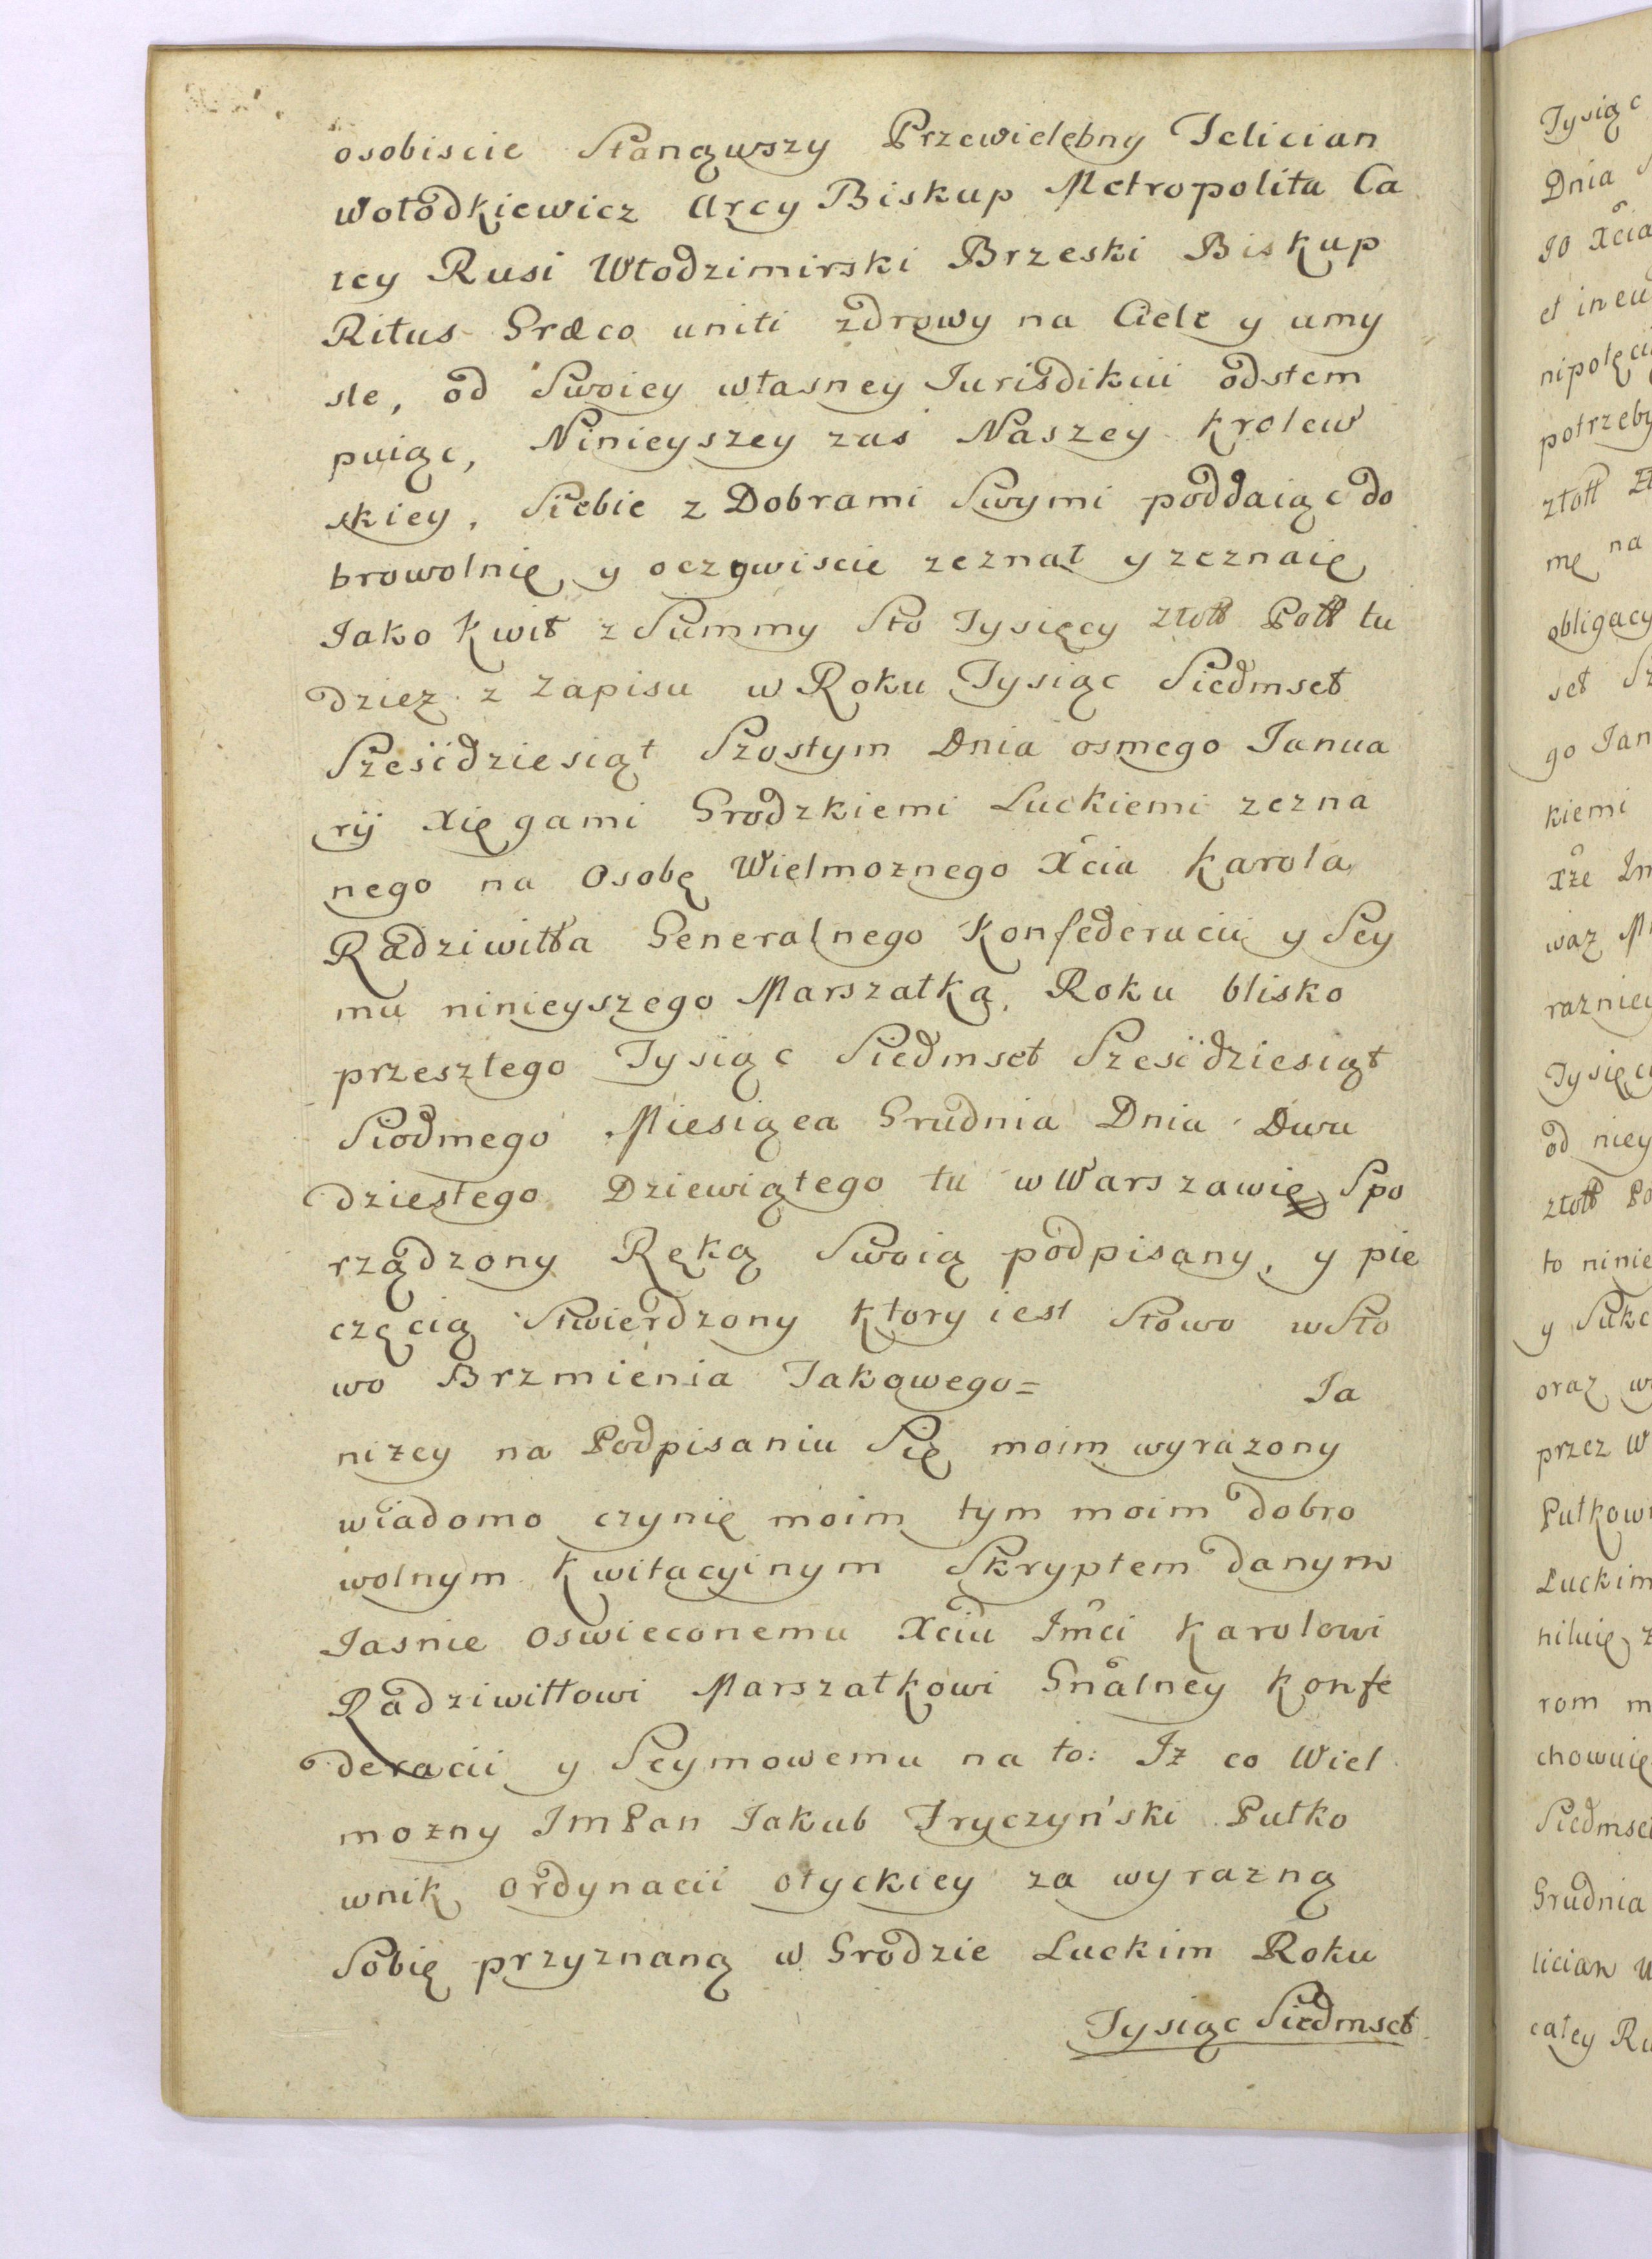 osobiscie Stanąwszy Przewielebny Felician
Wołodkiewicz Arcy Biskup Metropolita Ca
łey Rusi Włodzimirski Brzeski Biskup
Ritus Græco uniti zdrowy na Ciele y umy
sle, od Swoiey własney Iurisdikcii odstem
puiąc, Ninieyszey zaś Naszey Krolew
skiey, Siebie z Dobrami Swymi poddaiąc do
browolnię y oczywiscie zeznał y zeznaię
Iako Kwit z Summy Sto Tysięcy złoł Poł tu
dziez z Zapisu w Roku Tysiąc Siedmset
Sześćdziesiąt Szostym Dnia osmego Ianua
rij Xięgami Grodzkiemi Łuckiemi zezna
nego na Osobę Wielmoznego Xcia Karola
Radziwiłła Generalnego Konfederacii y Sey
mu ninieyszego Marszałka, Roku blisko
przeszłego Tysiąc Siedmset Sześćdziesiąt
Siodmego Miesiąca Grudnia Dnia Dwu
dziestego Dziewiątego tu w Warszawię Spo
rządzony Ręką Swoią podpisany, y pie
częcią Stwierdzony ktory iest Słowo w Sło
wo Brzmienia Takowego= Ia
niżey na Podpisaniu Się moim wyrazony
wiadomo czynię moim tym moim dobro
wolnym Kwitacyinym Skryptem danym
Iasnie Oswieconemu Xciu Imci Karolowi
Radziwiłłowi Marszałkowi Gnalney Konfe
deracii y Seymowemu na to: Iż co Wiel
mozny ImPan Iakub Fryczyński Pułko
wnik Ordynacii ołyckiey za wyrazną
Sobię przyznaną w Grodzie Łuckim Roku
Tysiąc Siedmset
Tysiąc
Dnia
go Xcia
et in eu
potrzeby
złoł
mę na
obligacy
set
go Ian
kiemi
Xże Im
waz
Tysięcy
od niey
złoł Po
to ninie
y Sukc
oraz
przez W
Pułkow
Łuckim
rom m
chowuię
Siedmset
Grudnia
lician W
całey Ru